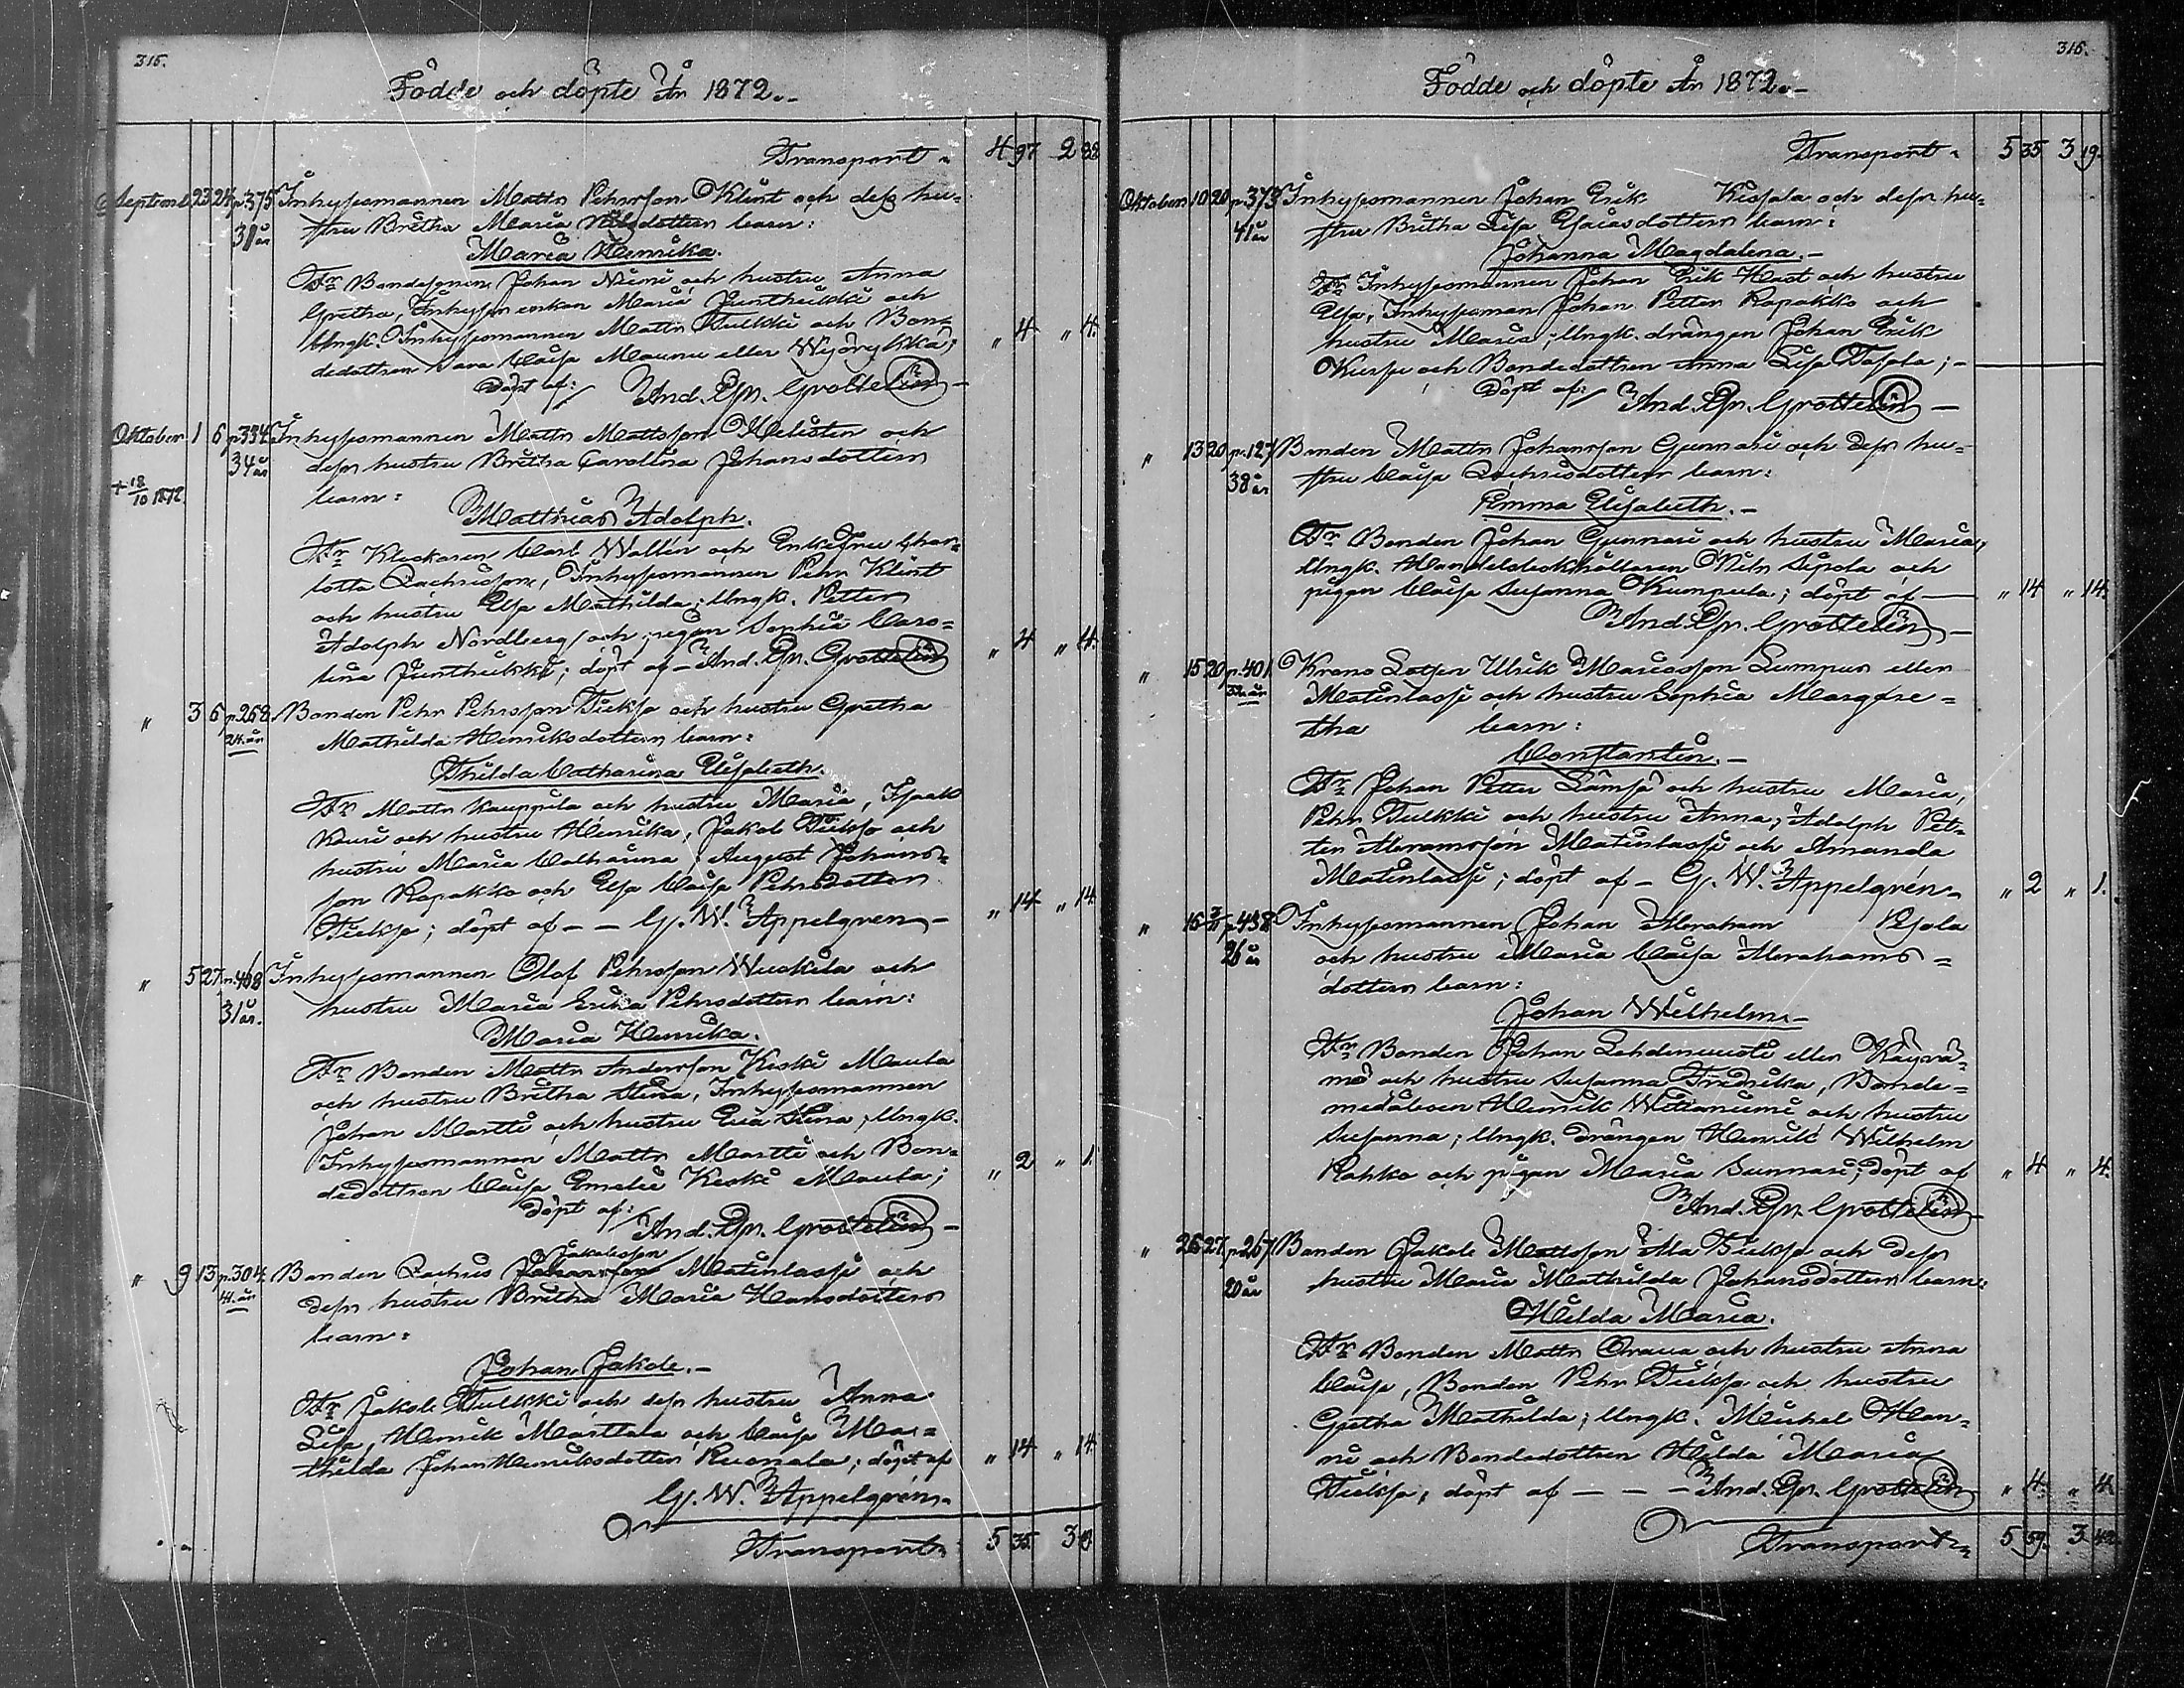 315.
Födde och döpte År 1872.
Transport 4 97 2 82
Septemb. 23 24 p.375 Inhysesmannen Matts Pehrsson Klint och dess hu-
31 år stru Britha Maria Nilsdotters barn:
Maria Henrika.
Fr. Bondesonen Johan Niemi och hustru Anna
Gretha, Inhyses enkan Maria Junthikki och
Ungk. Inhysesmannen Matts Tulkki och Bon- " 4 " 4.
dedottren Sara Caisa Maunu eller Wyöry
Döpt af: And. Gr. Grottelin
Oktober 1 6 p.334 Inhysesmannen Matts Mattsson Helisten och
34 år dess hustru Britha Carolina Johansdotters
+ 18/10 1872 barn:
Matthias Adolph.
Fr. Klockaren Carl Wallin och Enkefru Char-
lotta Zachrisson, Inhysesmannen Pehr Klint
och hustru Elsa Mathilda; Ungk. Petter
Adolph Nordberg och pigan Sophia Caro-
lina Junthikki; döpt af - And. Gr. Grottelin " 4 " 4.
" 3 6 p.268. Bonden Pehr Pehrsson Tiekso och hustru Gretha
24 år Mathilda Henriksdotters barn:
Thilda Catharina Elisabeth.
Fr. Matts Kauppila och hustru Maria, Isaak
Kauri och hustru Henrika, Jakob Tiekso och
hustru Maria Catharina; August Johans-
son Rapakko och Elsa Caisa Pehrsdotter
Tiekso; döpt af - - G. W. Appelgren - " 14 " 14
" 5 27 p.468 Inhysesmannen Olof Pehrsson Wuokila och
31 år. hustru Maria Erika Pehrsdotters barn:
Maria Henrika.
Fr. Bonden Matts Andersson Keski Maula
och hustru Britha Stina, Inhysesmannen
Johan Martti och hustru Eva Stina; Ungk.
Inhysesmannen Matts Martti och Bon- " 2 " 1.
dedottren Caisa Emelie Keski Maula;
döpt af: And. Gr. Grottelin
" 9 13 p.304. Bonden Zachris Jakobsson Matinlassi och
41 år dess hustru Britha Maria Hansdotters
barn:
Johan Jakob. -
Fr. Jakob Tulkki och dess hustru Anna
Lisa, Henrik Marttala och Caisa Ma-
thilda Johan Henriksdotter Ruonala; döpt af " 14 " 14
G. W. Appelgrén.
Transport 5 35. 3 19.
316.
Födde och döpte År 1872.
Transport 5 35 3 19.
Oktober 10 20 p.373 Inhysesmannen Johan Erik Kissala och dess hu-
41 år stru Britha Lisa Esaiasdotters barn:
Johanna Magdalena. -
Fr. Inhysesmannen Johan Erik Hast och hustru
Elsa, Inhysesman Johan Petter Rapakko och
hustru Maria; Ungk. drängen Johan Erik
och Bondedottren Anna Lisa Tasala; -
Döpt af: And. Gr. Grottelin
" 13 20 p.127 Bonden Matts Johansson Gunnari och dess hu-
38 år stru Caisa Zachrisdotters barn:
Emma Elisabeth. -
Fr. Bonden Johan Gunnari och hustru Maria;
Ungk. Handelsbokhållaren Nils Sipola och
pigan Caisa Susanna Kumpula; döpt af " 14 " 14.
And. Gr. Grottelin
" 15 20 p.401 Krono Lotsen Ulrik Mariasson Lumpus eller
32 år Matinlassi och hustru Sophia Margare-
tha barn:
Constantin. -
Fr. Johan Petter Lämsä och hustru Maria,
Pehr Tulkki och hustru Anna; Adolph Pet-
ter Abramsson Matinlassi och Amanda
Matinlassi; döpt af - G. W. Appelgrén - " 2 " 1.
" 16 3/11 p.438 Inhysesmannen Johan Abraham
26 år och hustru Maria Caisa Abrahams-
dotters barn:
Johan Wilhelm -
Fr. Bonden Johan Lehdinniusti eller Käyrä-
mö och hustru Susanna Fredrika, Bonde-
medåboen Henrik Wittaniemi och hustru
Susanna; Ungk. drängen Henrik Wilhelm
Rahko och pigan Maria Gunnari; döpt af " 4 " 4.
And. Gr. Grottelin
" 26 27 p.267 Bonden Jakob Mattsson Ala Tiekso och dess
20 år hustru Maria Mathilda Johansdotters barn:
Hilda Maria.
Fr. Bonden Matts Orava och hustru Anna
Caisa, Bonden Pehr Tiekso och hustru
Gretha Mathilda; Ungk. Michel Han-
ni och Bondedottren Hilda Maria
Tiekso, döpt af - - - And. Gr. Grottelin " 4. " 4.
Transport 5 59. 3 42.